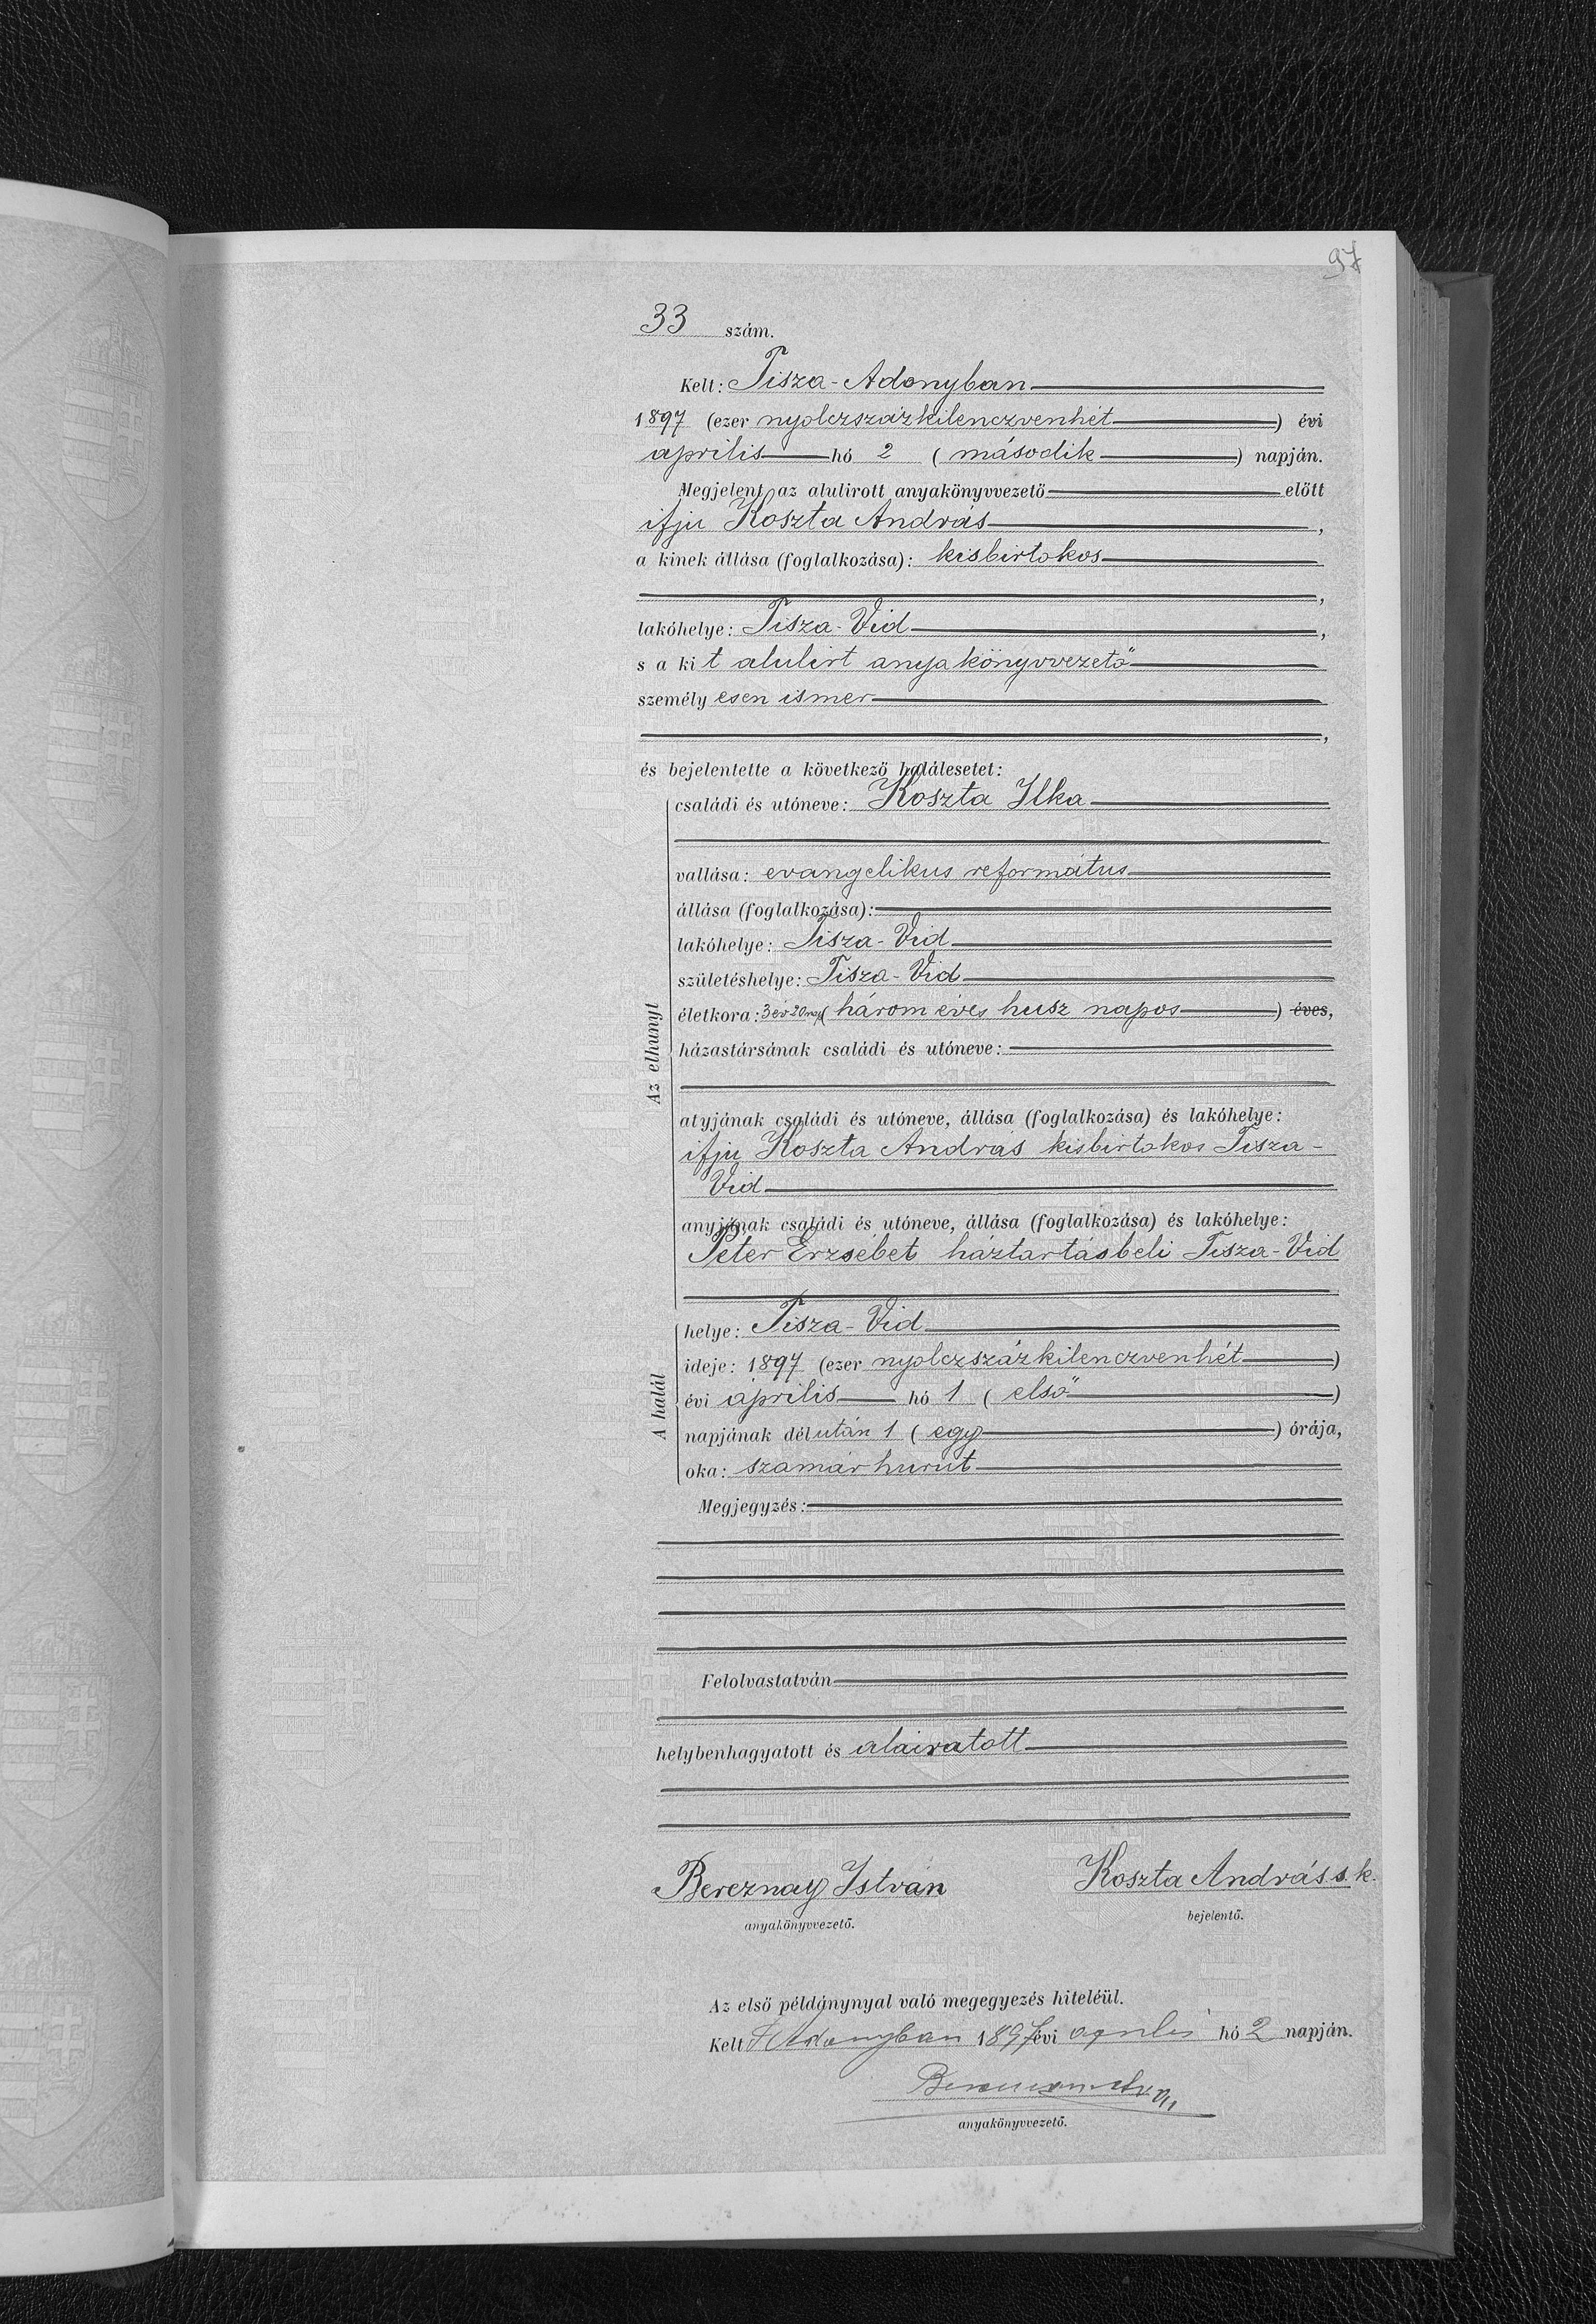 97
33 szám.
Kelt: Tisza-Adonyban
1897 (ezer nyolczszázkilenczvenhét) évi
április hó 2 (második) napján.
Megjelent az alulirott anyakönyvvezető előtt
ifju Koszta András,
a kinek állása (foglalkozása): kisbirtokos
,
lakóhelye: Tisza-Vid,
s a kit alulirt anyakönyvvezető
személyesen ismer
,
és bejelentette a következő halálesetet:
Az elhunyt
családi és utóneve: Koszta Ilka
vallása: evangelikus református
állása (foglalkozása):
lakóhelye: Tisza-Vid
születéshelye: Tisza-Vid
életkora: 3 év 20 nap (három éves husz napos) éves,
házastársának családi és utóneve:
atyjának családi és utóneve, állása (foglalkozása) és lakóhelye:
ifju Koszta András kisbirtokos Tisza-
Vid
anyjának családi és utóneve, állása (foglalkozása) és lakóhelye:
Péter Erzsébet háztartásbeli Tisza-Vid
A halál
helye: Tisza-Vid
ideje: 1897 (ezer nyolczszázkilenczvenhét)
évi április hó 1 (első)
napjának délután 1 (egy) órája,
oka: szamárhurut
Megjegyzés:
Felolvastatván
helybenhagyatott és aláiratott
Bereznay István Koszta András s. k.
anyakönyvvezető. bejelentő.
Az első példánynyal való megegyezés hiteléül.
Kelt T Adonyban 1897 évi április hó 2 napján.
anyakönyvvezető.